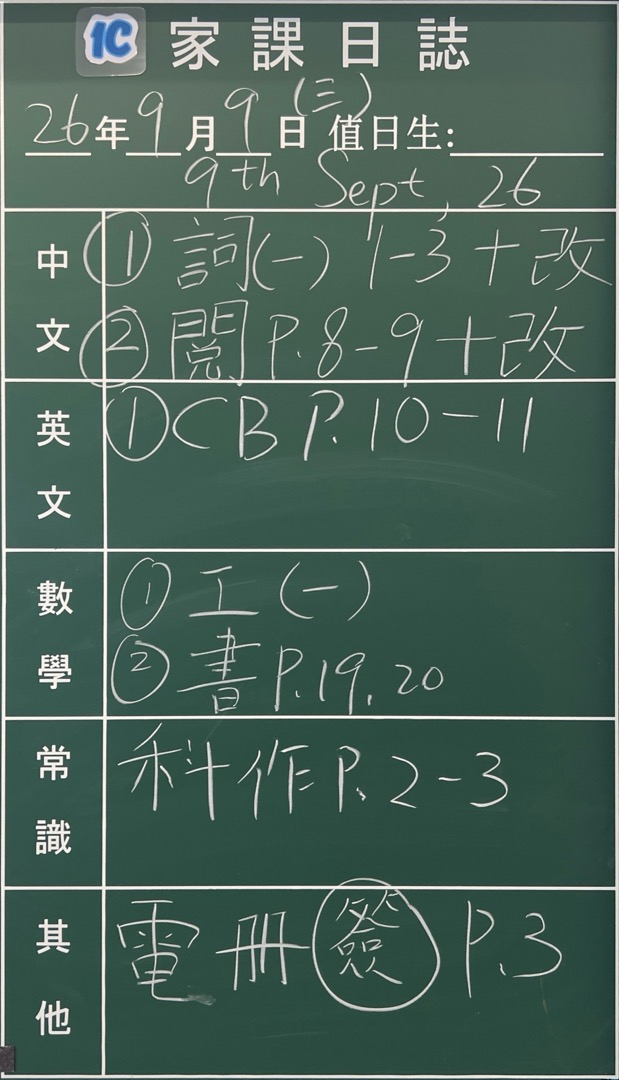 1C 家課日誌
26年9月9日(三) 值日生:
9th Sept, 26
中文
① 詞(一) 1-3 + 改
② 閱 P.8-9 + 改
英文
① CB P.10-11
數學
① 工(一)
② 書 P.19, 20
常識
科作 P.2-3
其他
電冊 簽 P.3